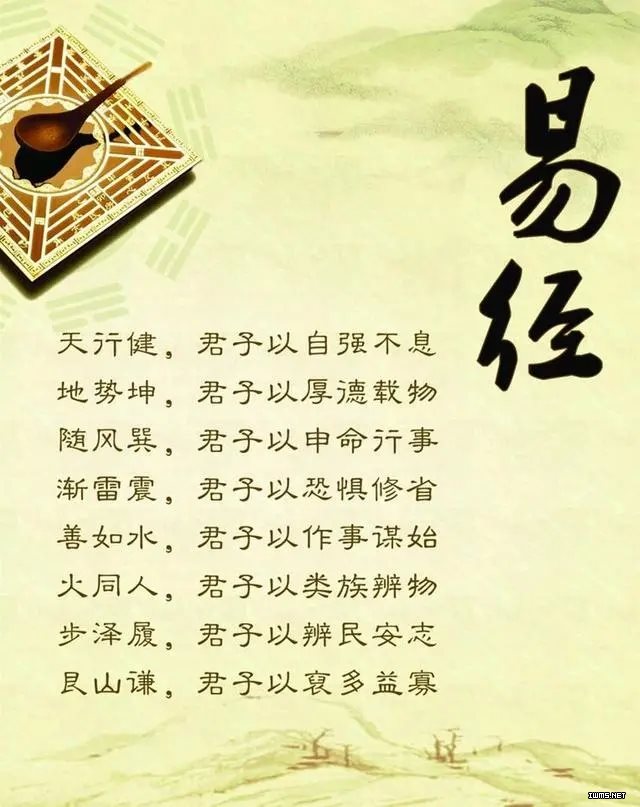 易经
天行健，君子以自强不息
地势坤，君子以厚德载物
随风巽，君子以申命行事
渐雷震，君子以恐惧修省
善如水，君子以作事谋始
火同人，君子以类族辨物
步泽履，君子以辨民安志
艮山谦，君子以裒多益寡
IWMS.NET